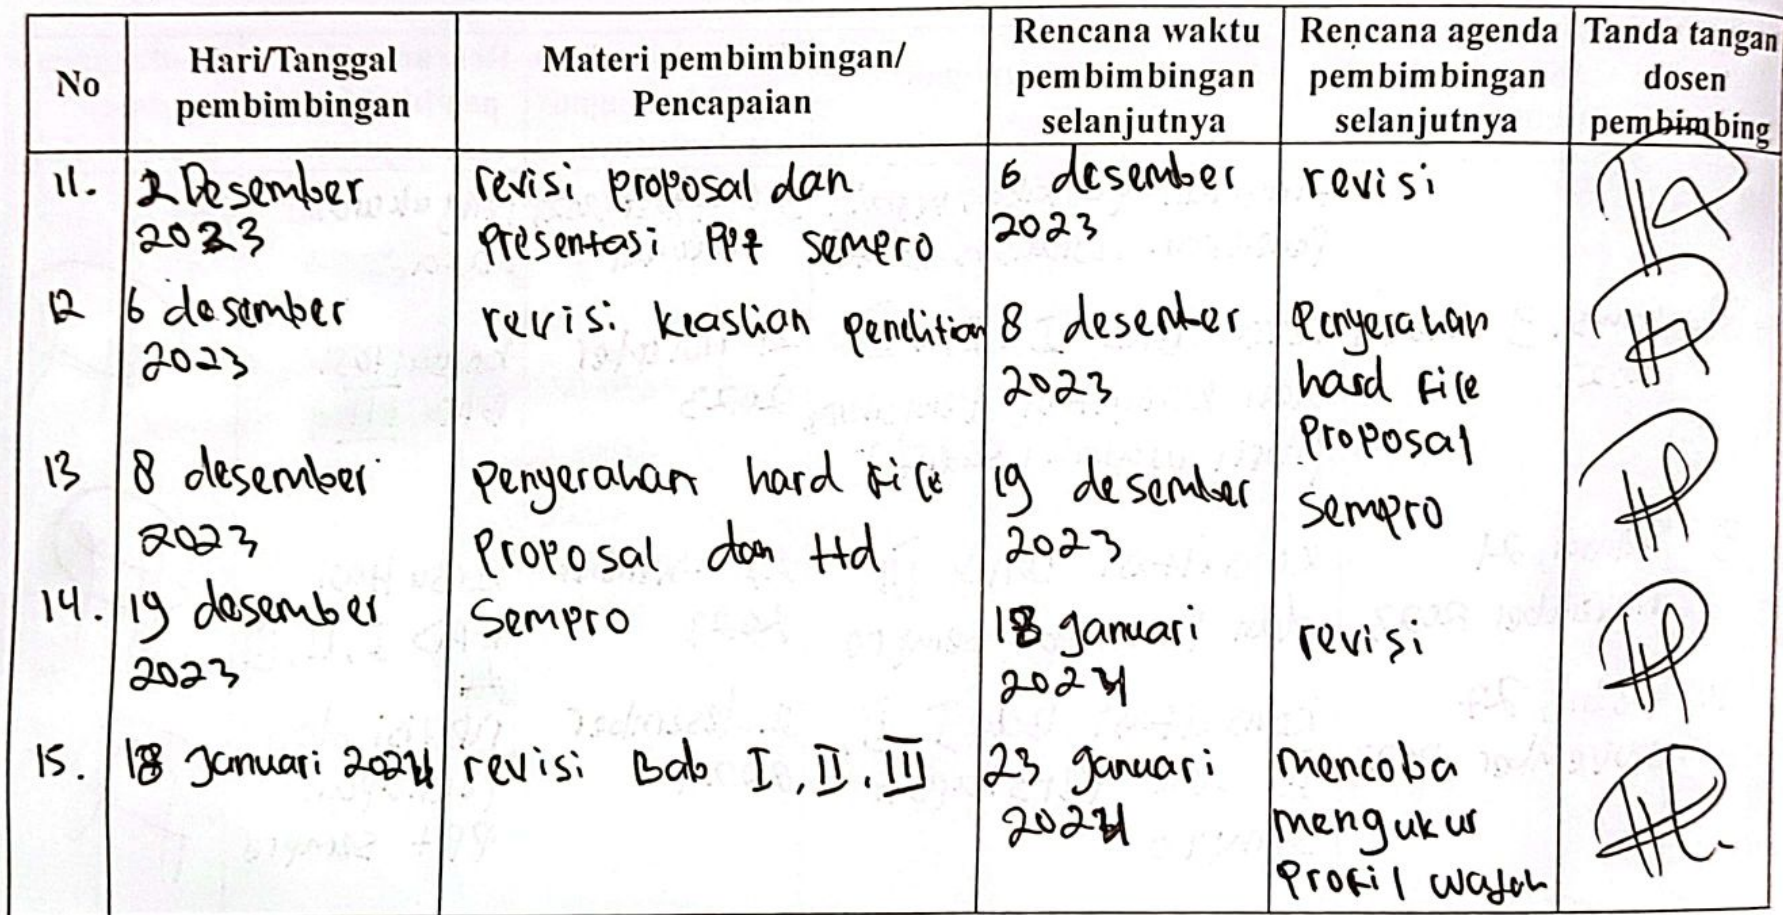 No
Hari/Tanggal
pembimbingan
Materi pembimbingan/
Pencapaian
Rencana waktu
pembimbingan
selanjutnya
Rencana agenda
pembimbingan
selanjutnya
Tanda tangan
dosen
pembimbing
11.
2 Desember
2023
revisi proposal dan
presentasi PPt sempro
6 desember
2023
revisi
12
6 desember
2023
revisi keaslian penelitian
8 desember
2023
Penyerahan
hard file
proposal
sempro
13
8 desember
2023
penyerahan hard file
proposal dan Hd
19 desember
2023
14.
19 desember
2023
Sempro
18 januari
2024
revisi
15.
18 Januari 2024
revisi Bab I, II, III
23 januari
2024
mencoba
mengukur
profil wajah